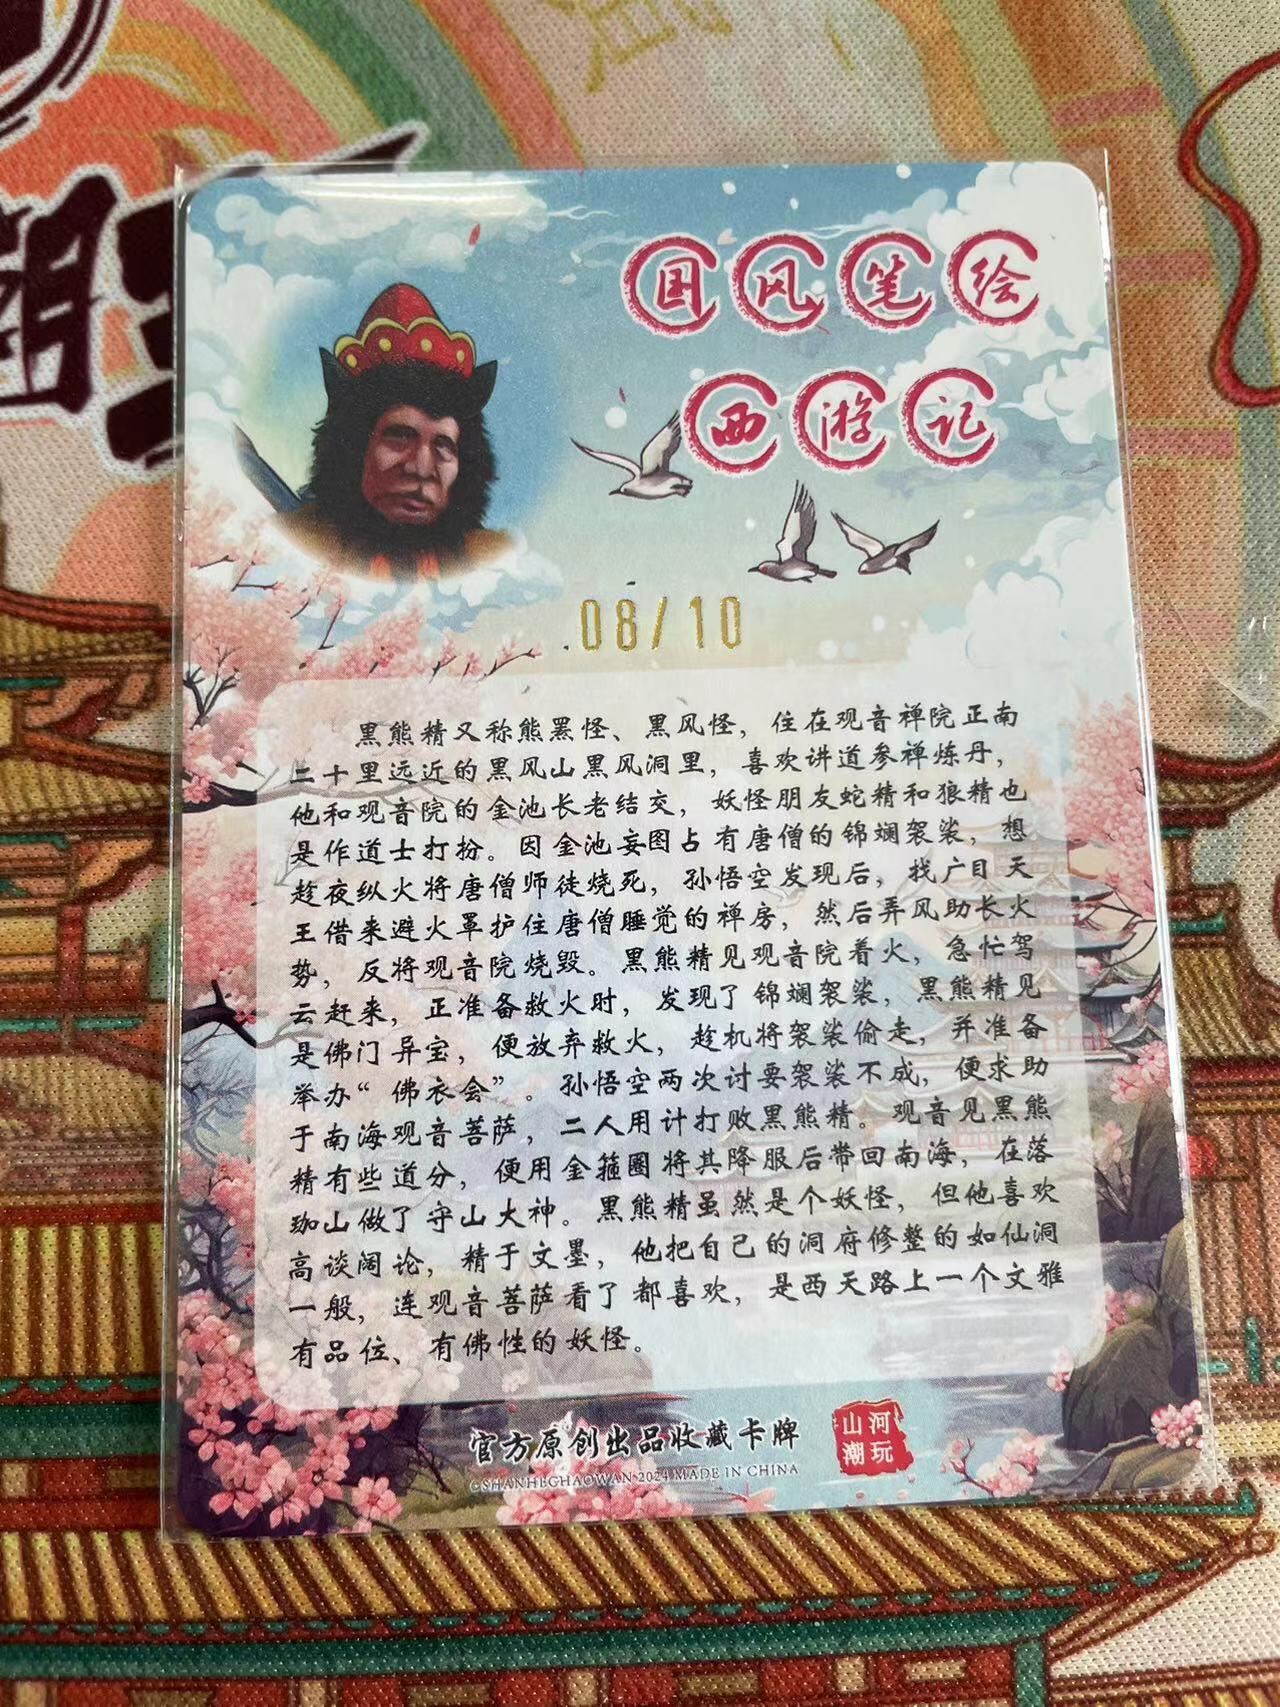 国风笔绘
西游记
08/10
黑熊精又称熊罴怪、黑风怪，住在观音禅院正南
二十里远近的黑风山黑风洞里，喜欢讲道参禅炼丹，
他和观音院的金池长老结交，妖怪朋友蛇精和狼精也
是作道士打扮。因金池妄图占有唐僧的锦斓袈裟，想
趁夜纵火将唐僧师徒烧死，孙悟空发现后，找广目天
王借来避火罩护住唐僧睡觉的禅房，然后弄风助长火
势，反将观音院烧毁。黑熊精见观音院着火，急忙驾
云赶来，正准备救火时，发现了锦斓袈裟，黑熊精见
是佛门异宝，便放弃救火，趁机将袈裟偷走，并准备
举办“佛衣会”。孙悟空两次讨要袈裟不成，便求助
于南海观音菩萨，二人用计打败黑熊精。观音见黑熊
精有些道分，便用金箍圈将其降服后带回南海，在落
珈山做了守山大神。黑熊精虽然是个妖怪，但他喜欢
高谈阔论，精于文墨，他把自己的洞府修整的如仙洞
一般，连观音菩萨看了都喜欢，是西天路上一个文雅
有品位、有佛性的妖怪。
官方原创出品收藏卡牌
©SHANHECHAOWAN 2024 MADE IN CHINA
山河
潮玩